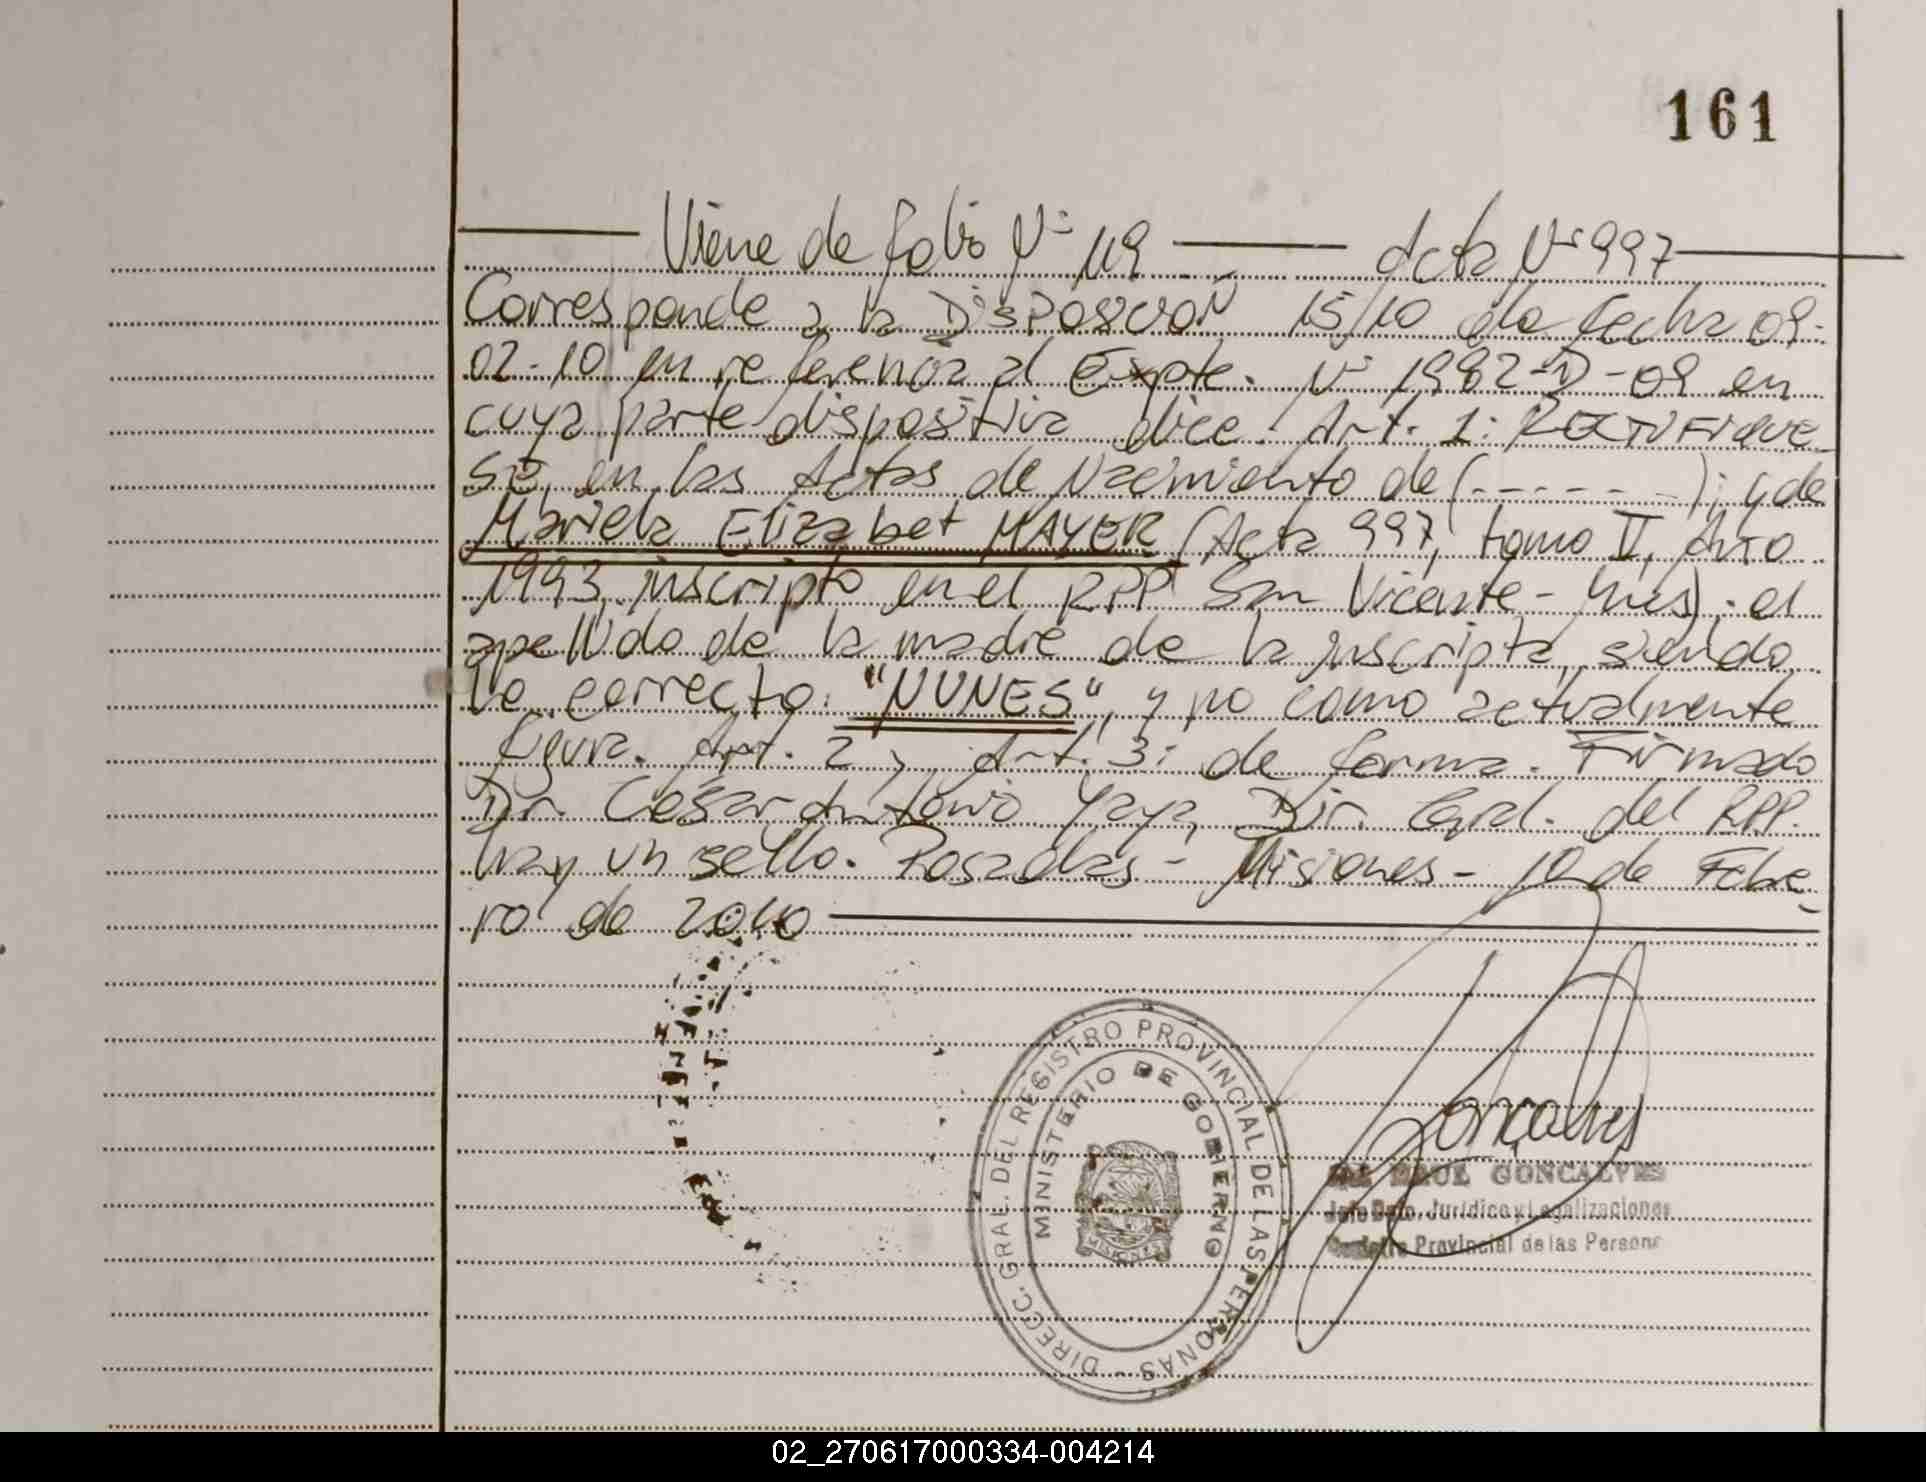 161
Viene de folio Nº 119 Acta Nº 997
Corresponde a la Disposición 15/10 de fecha 09-
02-10 en referencia al Expte. Nº 1982-D-09 en
cuya parte dispositiva dice: Art. 1: RECTIFIQUE
SE, en las Actas de Nacimiento de (- - - - - - -); y de
Mariela Elizabet MAYER (Acta 997, tomo II, Año
1993, inscripto en el RPP San Vicente - Mnes). el
apellido de la madre de la inscripta, siendo
lo correcto: "NUNES", y no como actualmente
figura. Art. 2 y Art. 3: de forma. Firmado
Dr. César Antonio Yaya, Dir. Gral. del RPP.
hay un sello. Posadas - Misiones - 10 de Febre
ro de 2010
DIRECC. GRAL. DEL REGISTRO PROVINCIAL DE LAS PERSONAS -
MINISTERIO DE GOBIERNO
MISIONES
Gonçalves
GONCALVES
Jefe Dpto. Jurídico y Legalizaciones
Provincial de las Persona
02_270617000334-004214